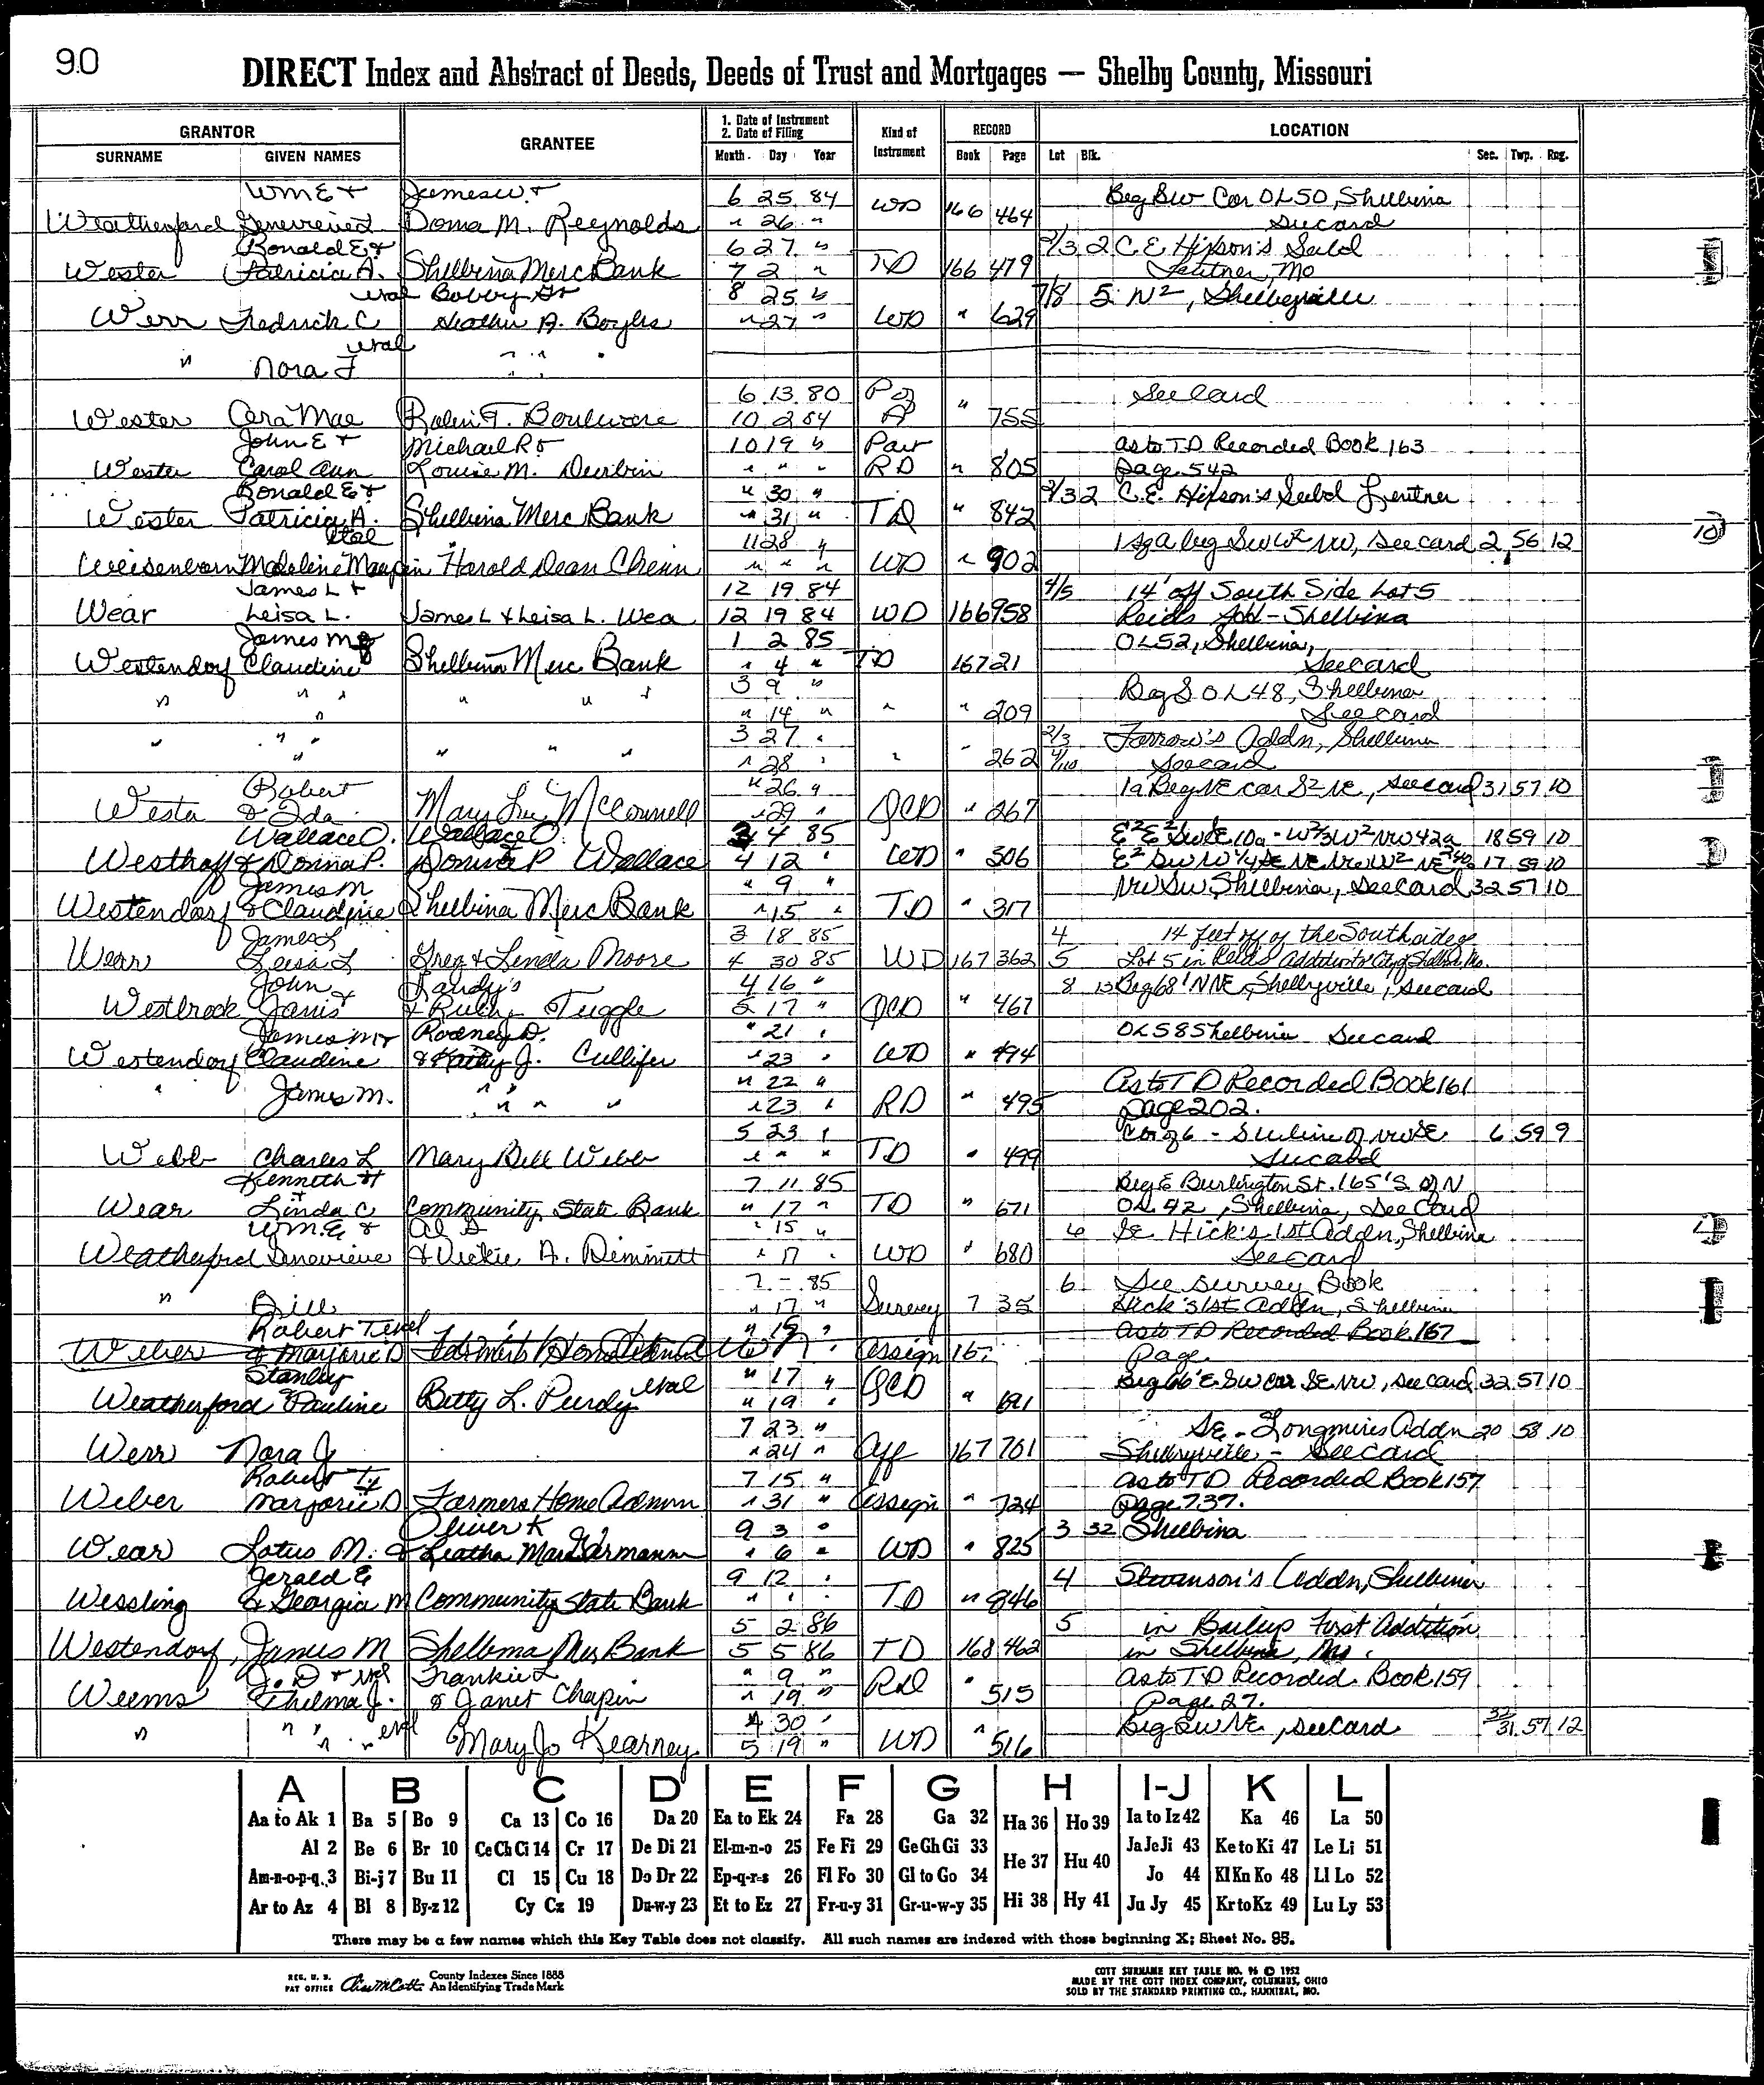 90
DIRECT Index and Abstract of Deeds, Deeds of Trust and Mortgages — Shelby County, Missouri
GRANTOR GRANTEE 1. Date of Instrument 2. Date of Filing Kind of Instrument RECORD LOCATION
SURNAME GIVEN NAMES Month Day Year Book Page Lot Blk. Sec. Twp. Rng.
Wm E & James W. & 6 25 84 WD 166 464 Beg SW Cor OL 50, Shelbina
Weatherford Genevieve Dorna M. Reynolds " 26 " See card
Ronald E & 6 27 " 2/3 2 C.E. Hixson's Subd
Wester Patricia A. Shelbina Merc Bank 7 2 " TD 166 479 Lentner, Mo
etal Bobby G & 8 25 " 7/8 5 N2, Shelbyville
Werr Fredrick C Heather A. Boyles " 27 " WD " 629
etal
" Nora F " "
6 13 80 P of See Card
Wester Cera Mae Robin T. Boulware 10 2 84 A " 755
John E & Michael R & 10 19 " Part as to TD Recorded Book 163
Wester Carol Ann Louise M. Durbin " " " RD " 805 Page 542
Ronald E & " 30 " 2/3 2 C.E. Hixson's Subd Lentner
Wester Patricia A. Shelbina Merc Bank " 31 " TD " 842
etal 11 28 " 1 sq a beg SW W2 NW, See card 2 56 12
Weisenborn Madeline Maupin Harold Dean Chinn " " " WD " 902
James L & 12 19 84 4/5 14' off South Side Lot 5
Wear Leisa L. James L & Leisa L. Wea 12 19 84 WD 166 958 Reids Add - Shelbina
James M & 1 2 85 OL 52, Shelbina,
Westendorf Claudine Shelbina Merc Bank " 4 " TD 167 21 See card
" " " " " " 3 9 " Beg S OL 48, Shelbina
" " 14 " " " 209 See card
" " " " " " 3 27 " 2/3 Farrow's Addn, Shelbina
" " 28 " " " 262 9/10 See card
Robert " 26 " 1a Beg NE cor S2 NE, See card 31 57 10
Westa & Ida Mary Lou McConnell " 29 " QCD " 267
Wallace O. Wallace O. 3 4 85 E2 E2 SW SE 10a - W2/3 W2 NW 42a 18 59 10
Westhoff & Donna P. Donna P Wallace 4 12 " WD " 306 17 59 10
James M " 9 " NW SW Shelbina, See card 32 57 10
Westendorf & Claudine Shelbina Merc Bank " 15 " TD " 317
James L 3 18 85 4 14 feet off of the South side of
Wear Leisa L Greg & Linda Moore 4 30 85 WD 167 362 5 Lot 5 in Reids Addition to City of Shelbina Mo.
John Randy S 4 16 " 8 13 Beg 68' N NE, Shelbyville, See card
Westbrook Janis & & Ruth Tuggle 5 17 " QCD " 467
James M & Rodney D. " 21 " OL 58 Shelbina See card
Westendorf Claudine & Kathy J. Cullifer " 23 " WD " 494
" James M. " " " 22 " As to TD Recorded Book 161
" " " " 23 " RD " 495 page 202.
5 23 " Cor of 6 - S line of NW SE 6 59 9
Webb Charles L Mary Bell Webb " " " TD " 499 See card
Kenneth H 7 11 85 Beg E Burlington St. 165' S of N
Wear & Linda C Community State Bank " 17 " TD " 671 OL 42, Shelbina, See Card
Wm. E & Al D " 15 " 6 SE Hick's 1st Addn, Shelbina
Weatherford Genevieve & Vickie A. Dimmett " 17 " WD " 680 See Card
7 - 85 6 See survey Book
" Bill " 17 " Survey 7 35 Hick's 1st Addn, Shelbina
Robert T etal " 15 " as to TD Recorded Book 167
Weber & Marjorie D Farmers Home Admn " 17 " Assign 167 Page
Stanley " 17 " Beg 66' E SW cor SE NW, See card 32 57 10
Weatherford & Pauline Betty L. Purdy etal " 19 " QCD " 691
7 23 " SE - Longmires Addn 20 58 10
Werr Nora J " 24 " Aff 167 701 Shelbyville - See card
Robert T & 7 15 " as to TD Recorded Book 157
Weber Marjorie D Farmers Home Admn " 31 " Assign " 724 page 737.
Oliver K 9 3 " 3 32 Shelbina
Wear Lotus M. & Leatha Mae Garmann " 6 " WD " 825
Gerald E 9 12 " 4 Swanson's Addn, Shelbina
Wessling & Georgia M Community State Bank " " " TD " 846
5 2 86 5 in Bailey First Addition
Westendorf, James M Shelbina Mer Bank 5 5 86 TD 168 462 in Shelbina, Mo.
J. D & etal Frankie L " 9 " As to TD Recorded Book 159
Weems Thelma J. & Janet Chapin " 19 " RD " 515 Page 27.
" " " etal 4 30 " Beg SW NE, See Card 32/31 57 12
" " Mary Jo Kearney 5 19 " WD " 516
A B C D E F G H I-J K L
Aa to Ak 1 Ba 5 Bo 9 Ca 13 Co 16 Da 20 Ea to Ek 24 Fa 28 Ga 32 Ha 36 Ho 39 Ia to Iz 42 Ka 46 La 50
Al 2 Be 6 Br 10 Ce Ch Ci 14 Cr 17 De Di 21 El-m-n-o 25 Fe Fi 29 Ge Gh Gi 33 He 37 Hu 40 Ja Je Ji 43 Ke to Ki 47 Le Li 51
Am-n-o-p-q 3 Bi-j 7 Bu 11 Cl 15 Cu 18 Do Dr 22 Ep-q-r-s 26 Fl Fo 30 Gl to Go 34 Jo 44 Kl Kn Ko 48 Ll Lo 52
Ar to Az 4 Bl 8 By-z 12 Cy Cz 19 Du-w-y 23 Et to Ez 27 Fr-u-y 31 Gr-u-w-y 35 Hi 38 Hy 41 Ju Jy 45 Kr to Kz 49 Lu Ly 53
There may be a few names which this Key Table does not classify. All such names are indexed with those beginning X; Sheet No. 95.
REG. U. S. PAT OFFICE County Indexes Since 1888 An Identifying Trade Mark
COTT SURNAME KEY TABLE NO. 96 © 1952
MADE BY THE COTT INDEX COMPANY, COLUMBUS, OHIO
SOLD BY THE STANDARD PRINTING CO., HANNIBAL, MO.